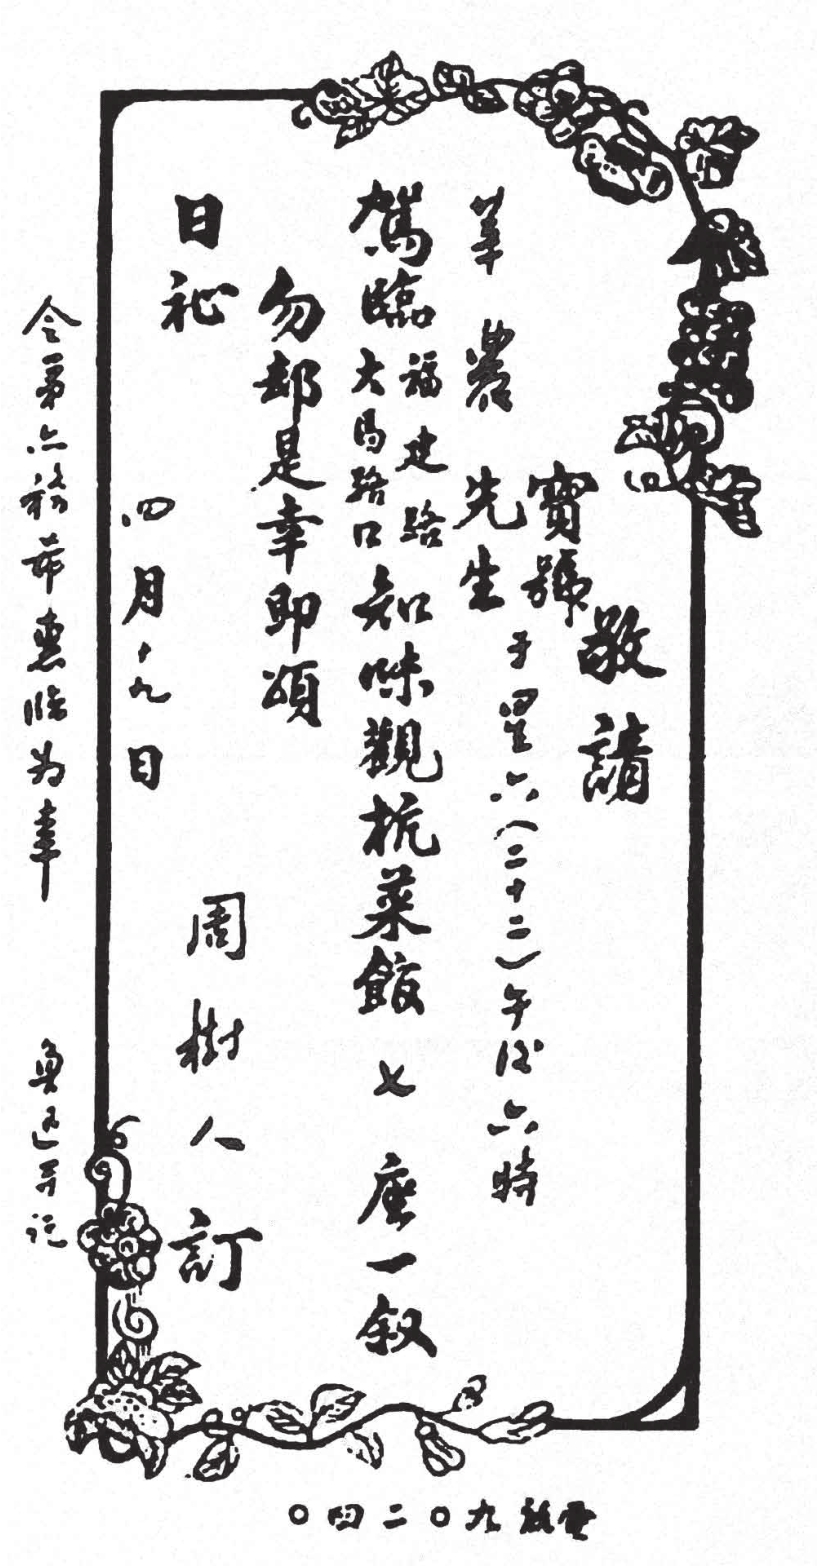 敬請
寶號
莘農先生于星六(二十二)午後六時
駕臨福建路大馬路口知味觀杭菜館七座一叙
勿却是幸即頌
日祉
周樹人訂
四月十九日
令弟亦務希惠臨为幸 魯迅并託
電話九〇二四〇